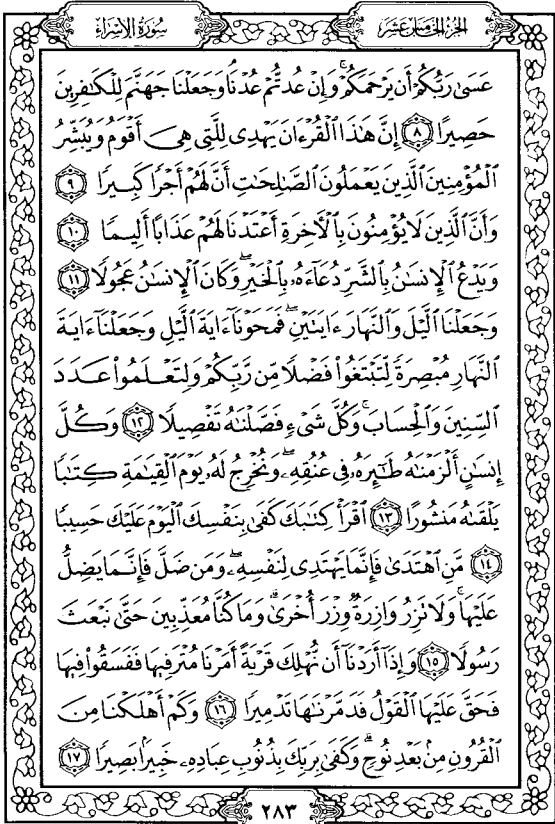 الجزء الخامس عشر
سورة الإسراء
عَسَىٰ رَبُّكُمْ أَن يَرْحَمَكُمْ ۚ وَإِنْ عُدتُّمْ عُدْنَا ۘ وَجَعَلْنَا جَهَنَّمَ لِلْكَٰفِرِينَ
حَصِيرًا ﴿٨﴾ إِنَّ هَٰذَا ٱلْقُرْءَانَ يَهْدِى لِلَّتِى هِىَ أَقْوَمُ وَيُبَشِّرُ
ٱلْمُؤْمِنِينَ ٱلَّذِينَ يَعْمَلُونَ ٱلصَّٰلِحَٰتِ أَنَّ لَهُمْ أَجْرًا كَبِيرًا ﴿٩﴾
وَأَنَّ ٱلَّذِينَ لَا يُؤْمِنُونَ بِٱلْأَخِرَةِ أَعْتَدْنَا لَهُمْ عَذَابًا أَلِيمًا ﴿١٠﴾
وَيَدْعُ ٱلْإِنسَٰنُ بِٱلشَّرِّ دُعَآءَهُۥ بِٱلْخَيْرِ ۖ وَكَانَ ٱلْإِنسَٰنُ عَجُولًا ﴿١١﴾
وَجَعَلْنَا ٱلَّيْلَ وَٱلنَّهَارَ ءَايَتَيْنِ ۖ فَمَحَوْنَآ ءَايَةَ ٱلَّيْلِ وَجَعَلْنَآ ءَايَةَ
ٱلنَّهَارِ مُبْصِرَةً لِّتَبْتَغُوا۟ فَضْلًا مِّن رَّبِّكُمْ وَلِتَعْلَمُوا۟ عَدَدَ
ٱلسِّنِينَ وَٱلْحِسَابَ ۚ وَكُلَّ شَىْءٍ فَصَّلْنَٰهُ تَفْصِيلًا ﴿١٢﴾ وَكُلَّ
إِنسَٰنٍ أَلْزَمْنَٰهُ طَٰٓئِرَهُۥ فِى عُنُقِهِۦ ۖ وَنُخْرِجُ لَهُۥ يَوْمَ ٱلْقِيَٰمَةِ كِتَٰبًا
يَلْقَىٰهُ مَنشُورًا ﴿١٣﴾ ٱقْرَأْ كِتَٰبَكَ كَفَىٰ بِنَفْسِكَ ٱلْيَوْمَ عَلَيْكَ حَسِيبًا
﴿١٤﴾ مَّنِ ٱهْتَدَىٰ فَإِنَّمَا يَهْتَدِى لِنَفْسِهِۦ ۖ وَمَن ضَلَّ فَإِنَّمَا يَضِلُّ
عَلَيْهَا ۚ وَلَا تَزِرُ وَازِرَةٌ وِزْرَ أُخْرَىٰ ۗ وَمَا كُنَّا مُعَذِّبِينَ حَتَّىٰ نَبْعَثَ
رَسُولًا ﴿١٥﴾ وَإِذَآ أَرَدْنَآ أَن نُّهْلِكَ قَرْيَةً أَمَرْنَا مُتْرَفِيهَا فَفَسَقُوا۟ فِيهَا
فَحَقَّ عَلَيْهَا ٱلْقَوْلُ فَدَمَّرْنَٰهَا تَدْمِيرًا ﴿١٦﴾ وَكَمْ أَهْلَكْنَا مِنَ
ٱلْقُرُونِ مِنۢ بَعْدِ نُوحٍ ۗ وَكَفَىٰ بِرَبِّكَ بِذُنُوبِ عِبَادِهِۦ خَبِيرًۢا بَصِيرًا ﴿١٧﴾
٢٨٣